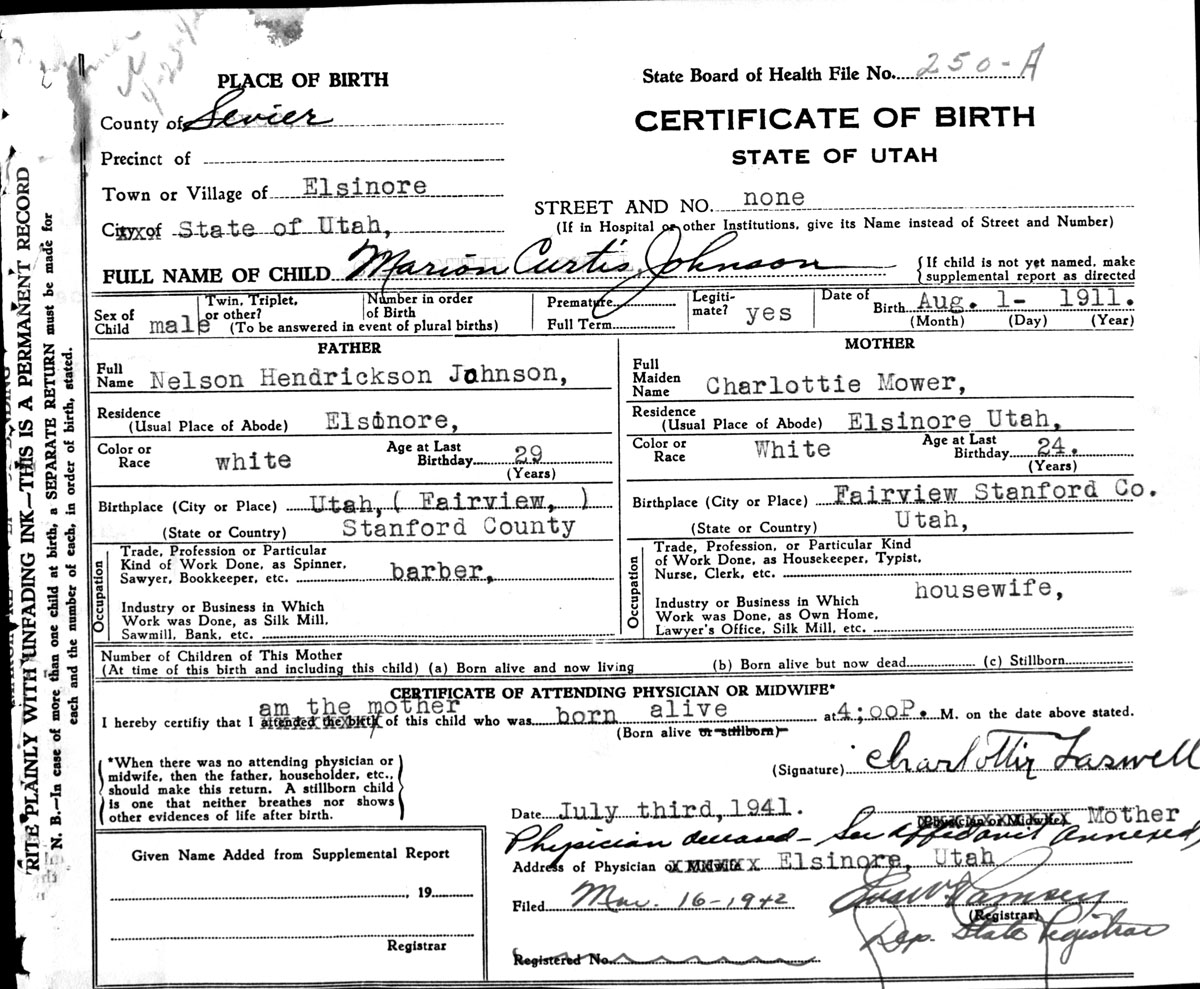 PLACE OF BIRTH
State Board of Health File No. 250-A
County of Sevier
CERTIFICATE OF BIRTH
Precinct of
STATE OF UTAH
Town or Village of Elsinore
STREET AND NO. none
City of State of Utah,
(If in Hospital or other Institutions, give its Name instead of Street and Number)
FULL NAME OF CHILD Marion Curtis Johnson
{If child is not yet named, make
supplemental report as directed
Sex of Child male
Twin, Triplet, or other?
Number in order of Birth
(To be answered in event of plural births)
Premature
Full Term
Legiti-mate? yes
Date of Birth Aug. 1- 1911.
(Month) (Day) (Year)
FATHER
Full Name Nelson Hendrickson Johnson,
Residence
(Usual Place of Abode) Elsinore,
Color or Race white
Age at Last Birthday 29
(Years)
Birthplace (City or Place) Utah, ( Fairview, )
(State or Country) Stanford County
Occupation
Trade, Profession or Particular
Kind of Work Done, as Spinner,
Sawyer, Bookkeeper, etc. barber,
Industry or Business in Which
Work was Done, as Silk Mill,
Sawmill, Bank, etc.
MOTHER
Full Maiden Name Charlottie Mower,
Residence
(Usual Place of Abode) Elsinore Utah,
Color or Race White
Age at Last Birthday 24.
(Years)
Birthplace (City or Place) Fairview Stanford Co.
(State or Country) Utah,
Occupation
Trade, Profession, or Particular Kind
of Work Done, as Housekeeper, Typist,
Nurse, Clerk, etc.
housewife,
Industry or Business in Which
Work was Done, as Own Home,
Lawyer's Office, Silk Mill, etc.
Number of Children of This Mother
(At time of this birth and including this child) (a) Born alive and now living (b) Born alive but now dead (c) Stillborn
CERTIFICATE OF ATTENDING PHYSICIAN OR MIDWIFE*
am the mother
I hereby certify that I attended the birth of this child who was born alive at 4;00P. M. on the date above stated.
(Born alive or stillborn)
*When there was no attending physician or
midwife, then the father, householder, etc.,
should make this return. A stillborn child
is one that neither breathes nor shows
other evidences of life after birth.
(Signature) Charlottie Faswell
Date July third, 1941.
(Physician or Midwife) Mother
Physician deceased - See Affidavit annexed
Address of Physician or Midwife Elsinore, Utah
Filed Mar. 16-1942
(Registrar)
Dep. State Registrar
Registered No.
Given Name Added from Supplemental Report
, 19
Registrar
RITE PLAINLY WITH UNFADING INK—THIS IS A PERMANENT RECORD
N. B.—In case of more than one child at birth, a SEPARATE RETURN must be made for
each and the number of each, in order of birth, stated.